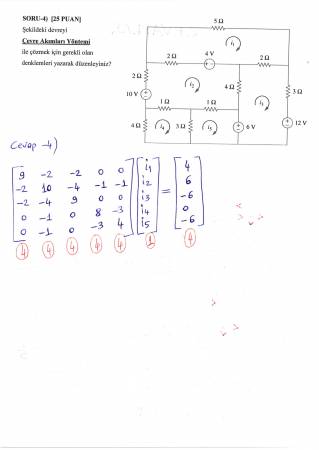 SORU-4) [25 PUAN]
Şekildeki devreyi
Çevre Akımları Yöntemi
ile çözmek için gerekli olan
denklemleri yazarak düzenleyiniz?
5 Ω
i₁
2 Ω
4 V
2 Ω
2 Ω
i₂
4 Ω
3 Ω
10 V
i₃
1 Ω
1 Ω
4 Ω
i₄
3 Ω
i₅
6 V
12 V
Cevap -4)
9 -2 -2 0 0 i1 4
-2 10 -4 -1 -1 i2 6
-2 -4 9 0 0 i3 = -6
0 -1 0 8 -3 i4 0
0 -1 0 -3 4 i5 -6
4 4 4 4 4 1 4